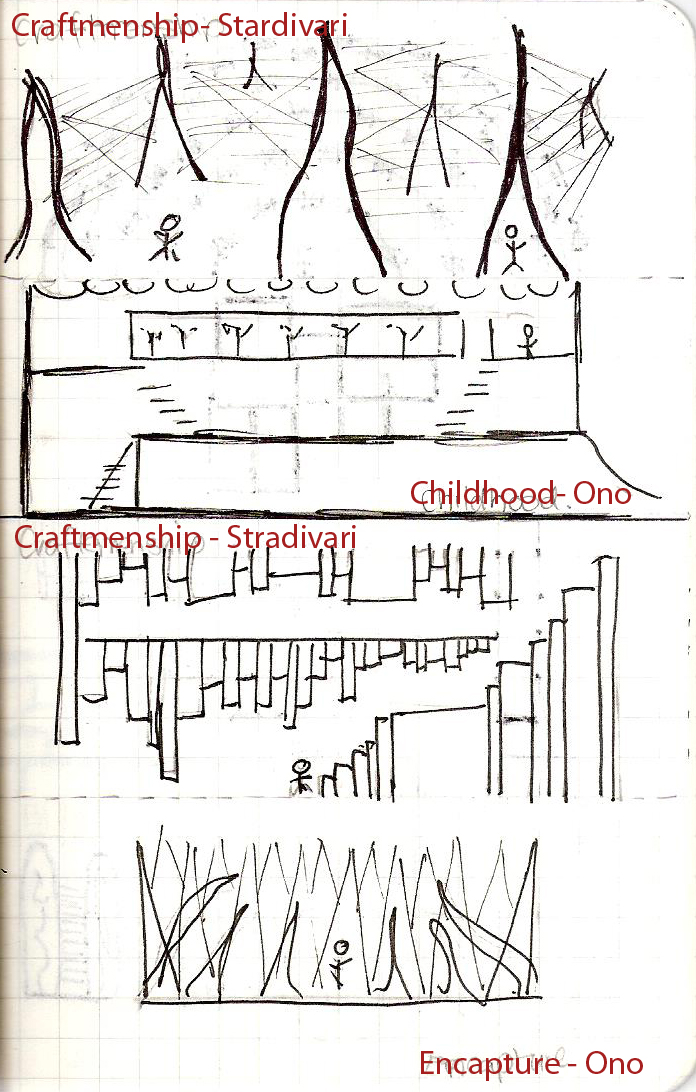 Craftmenship- Stardivari
Childhood- Ono
Craftmenship - Stradivari
Encapture - Ono